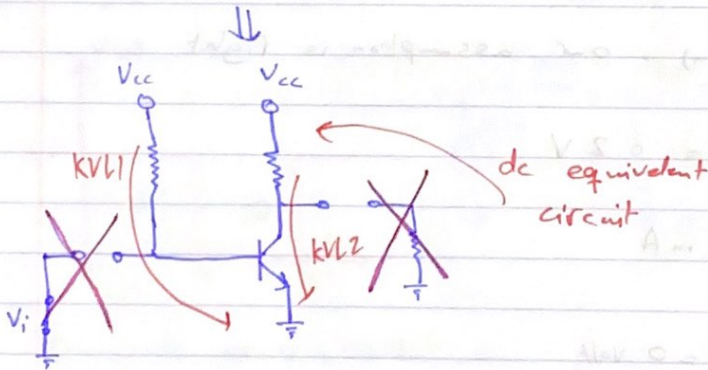 Vcc Vcc
KVL1
dc equivalent
circuit
KVL2
Vi